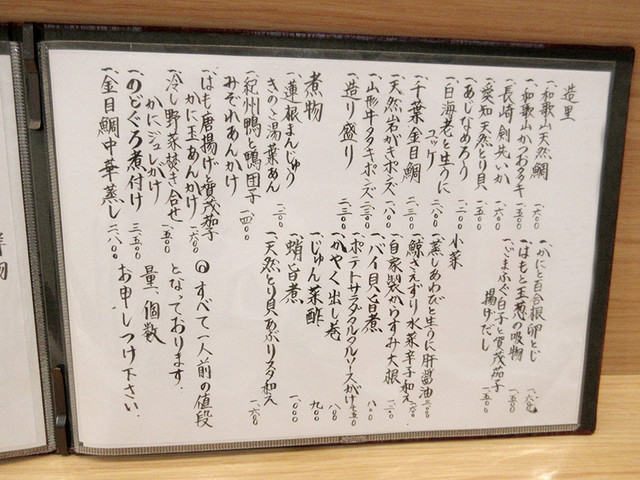 造里
一、和歌山天然鯛 一、六〇〇
一、和歌山かつおタタキ 一、五〇〇
一、長崎剣先いか 一、六〇〇
一、愛知天然とり貝 一、五〇〇
一、あじなめろう 一、二〇〇
一、白海老と生うに
ユッケ 二、八〇〇
一、千葉金目鯛 二、三〇〇
一、天然岩がきポン酢 一、八〇〇
一、山形牛タタキポンズ 二、三〇〇
一、造り盛り 二、三〇〇
煮物
一、蓮根まんじゅう
きのこ湯葉あん 一、二〇〇
一、紀州鴨と鴨団子
みぞれあんかけ 一、四〇〇
一、はも唐揚げと賀茂茄子
かに玉あんかけ 一、六〇〇
一、冷し野菜焚き合せ
かにジュレがけ 一、五〇〇
一、のどぐろ煮付け 三、五〇〇
一、金目鯛中華蒸し 二、八〇〇
一、かにと百合根卵とじ 一、六〇〇
一、はもと玉葱の吸物 一、五〇〇
一、ごまふぐ白子と賀茂茄子
揚げだし 一、五〇〇
小菜
一、蒸しあわびと生うに肝醤油 三、〇〇〇
一、鯨さえずり水菜辛子和え
一、自家製からすみ大根
一、バイ貝旨煮 八〇〇
一、ポテトサラダタルタルソースがけ
一、かやく出し巻 八〇〇
一、じゅん菜酢 九〇〇
一、蛸旨煮 一、〇〇〇
一、天然とり貝あぶりヌタ和え 一、六〇〇
すべて一人前の値段
となっております。
量、個数
お申しつけ下さい。